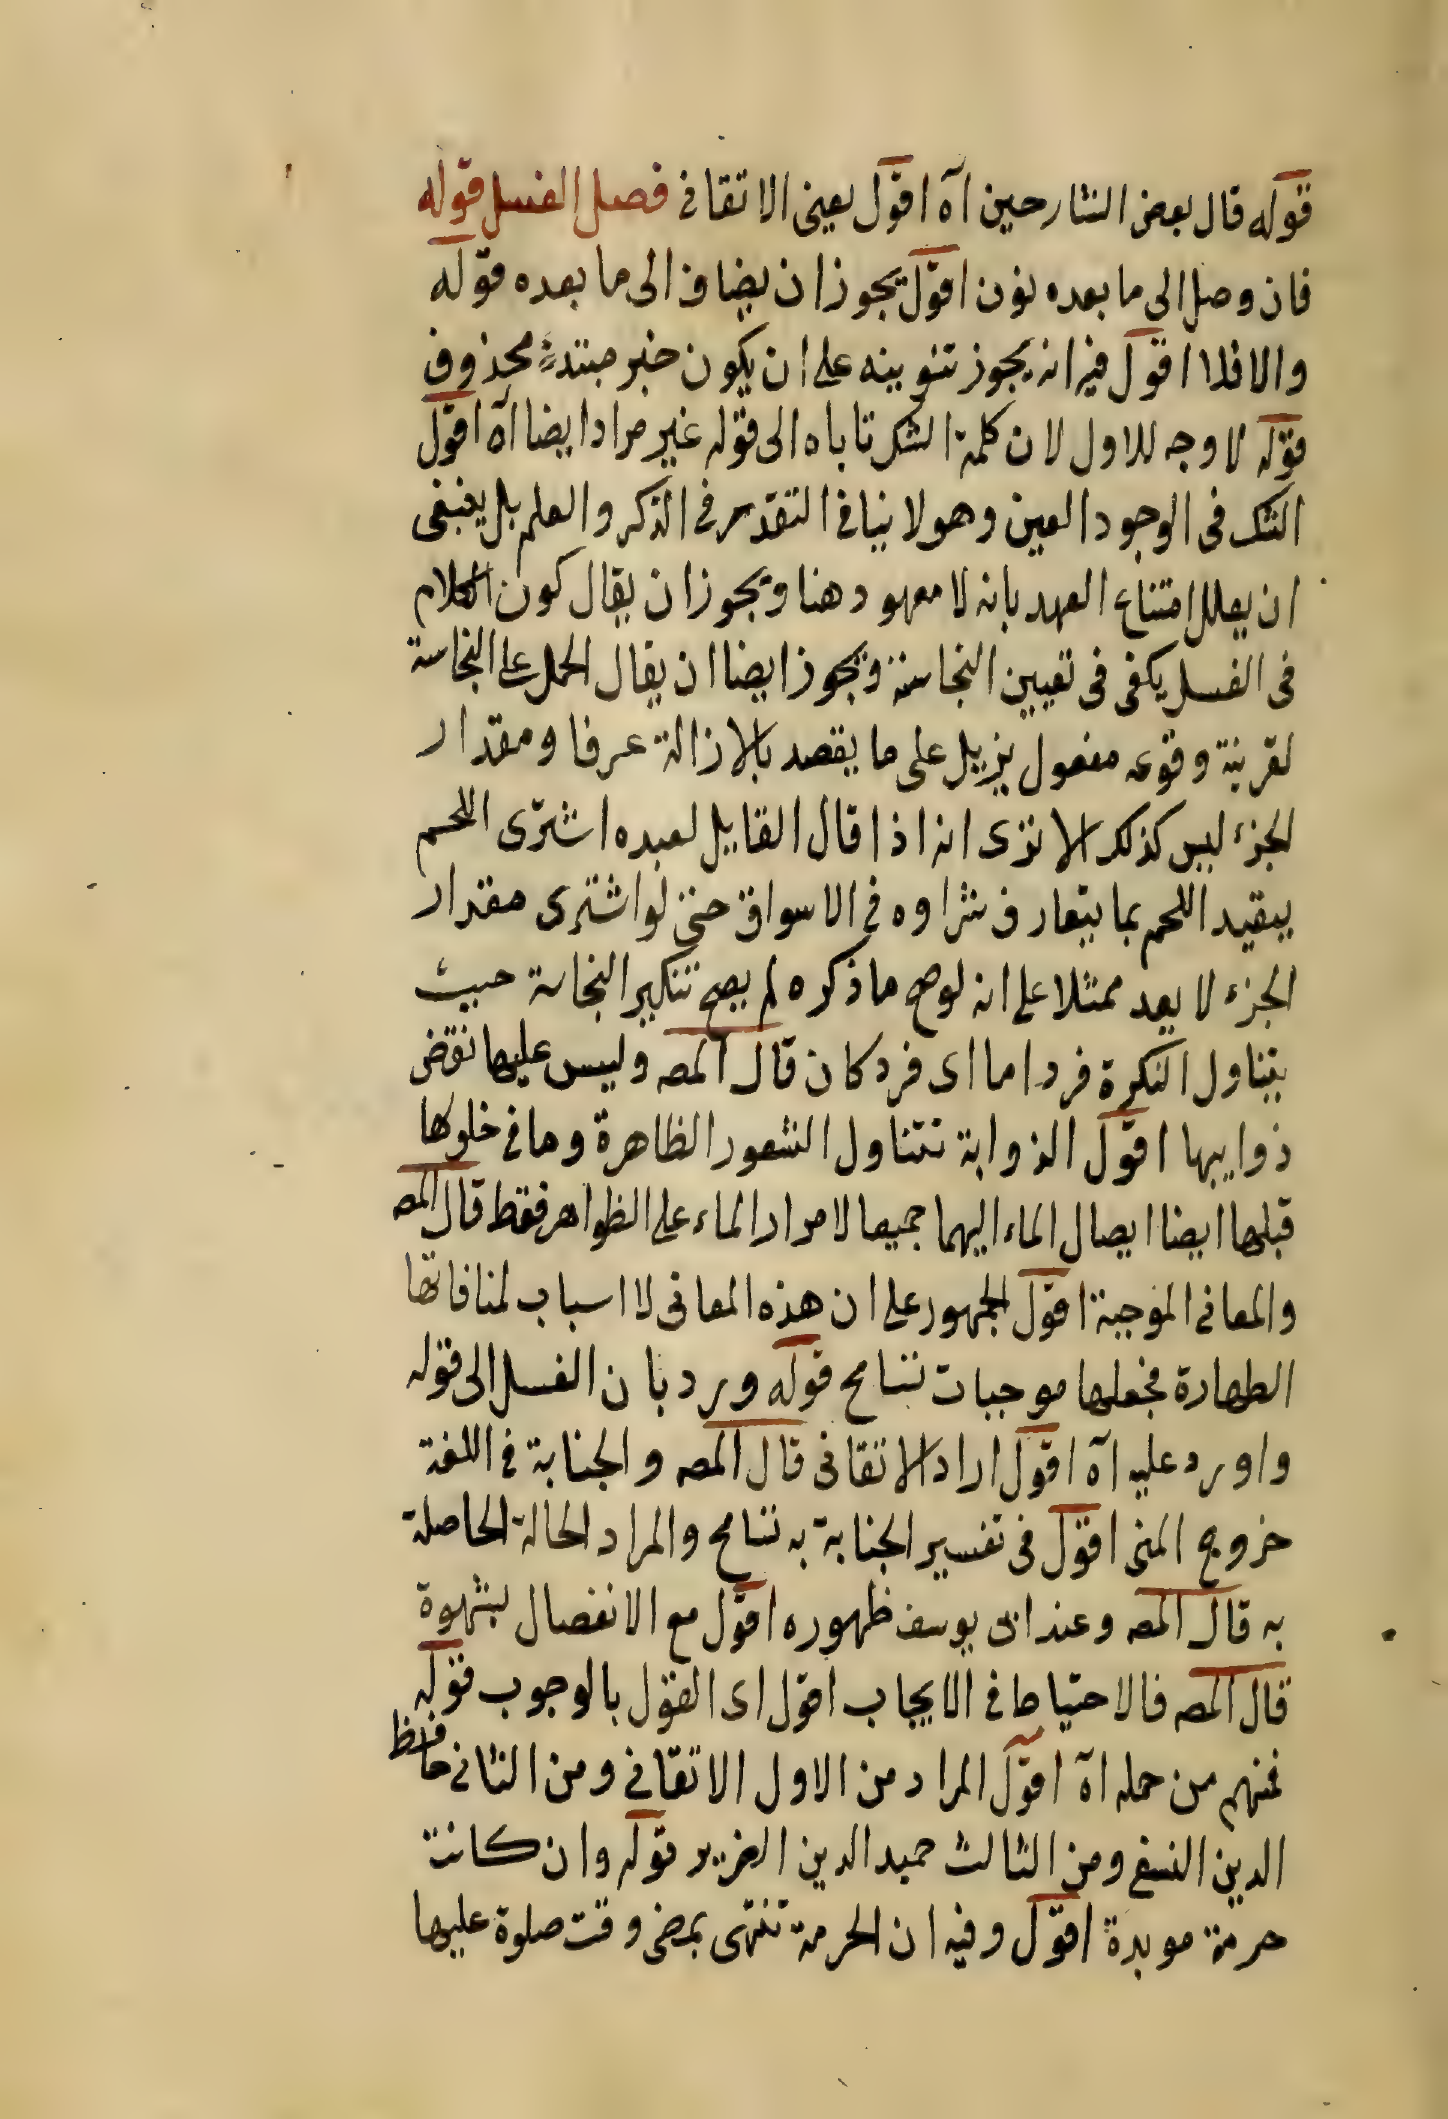 قوله قال بعض الشارحين آه اقول يعنى الاتقانى فصل الغسل قوله
فان وصل الى ما بعده نون اقول يجوز ان يضاف الى ما بعده قوله
والا فلا اقول فيه انه يجوز تنوينه على ان يكون خبر مبتدء محذوف
قوله لا وجه للاول لان كلمة الشك تاباه الى قوله غير مراد ايضا آه اقول
الشك فى الوجود العين وهو لا ينافى التقدم فى الذكر والعلم بل ينبغى
ان يعلل امتناع العهد بانه لا معهود هنا ويجوز ان يقال كون الكلام
فى الغسل يكفى فى تعيين النجاسة ويجوز ايضا ان يقال الحمل على النجاسة
لقرينة وقوعه مفعول يزيل على ما يقصد بالازالة عرفا ومقدار
الجزء ليس كذلك الا ترى انه اذا قال القايل لعبده اشترى اللحم
يتقيد اللحم بما يتعارف شراوه فى الاسواق حتى لو اشترى مقدار
الجزء لا يعد ممتثلا على انه لو صح ما ذكره لم يصح تنكير النجاسة حيث
يتناول النكرة فردا ما اى فرد كان قال المصه وليس عليها نقض
ذوايبها اقول الذوابة تتناول الشعور الظاهرة وما فى خلولها
قبلها ايضا ايصال الماء اليهما جميعا لا مرار الماء على الظواهر فقط قال المصه
والمعانى الموجبة اقول الجمهور على ان هذه المعانى لا اسباب لمنافاتها
الطهارة فجعلها موجبات تسامح قوله ورد بان الغسل الى قوله
واورد عليه آه اقول اراد الاتقانى قال المصه والجنابة فى اللغة
خروج المنى اقول فى تفسير الجنابة به تسامح والمراد الحالة الحاصلة
به قال المصه وعند ابى يوسف ظهوره اقول مع الانفصال بشهوة
قال المصه فالاحتياط فى الايجاب اقول اى القول بالوجوب قوله
فمنهم من حمله آه اقول المراد من الاول الاتقانى ومن الثانى حافظ
الدين النسفى ومن الثالث حميد الدين الضرير قوله وان كانت
حرمة موبدة اقول وفيه ان الحرمة تنتهى بمضى وقت صلوة عليها